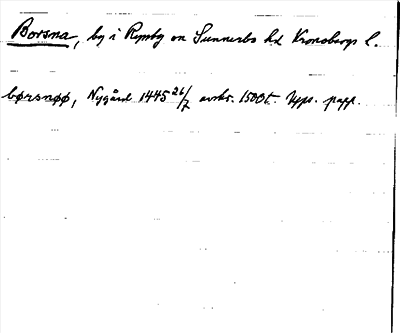 Borsna, by i Ryssby sn Sunnerbo hd Kronobergs l.
børsnøø, Nygård 1445 26/7 avskr. 1500t. Upps. papp.